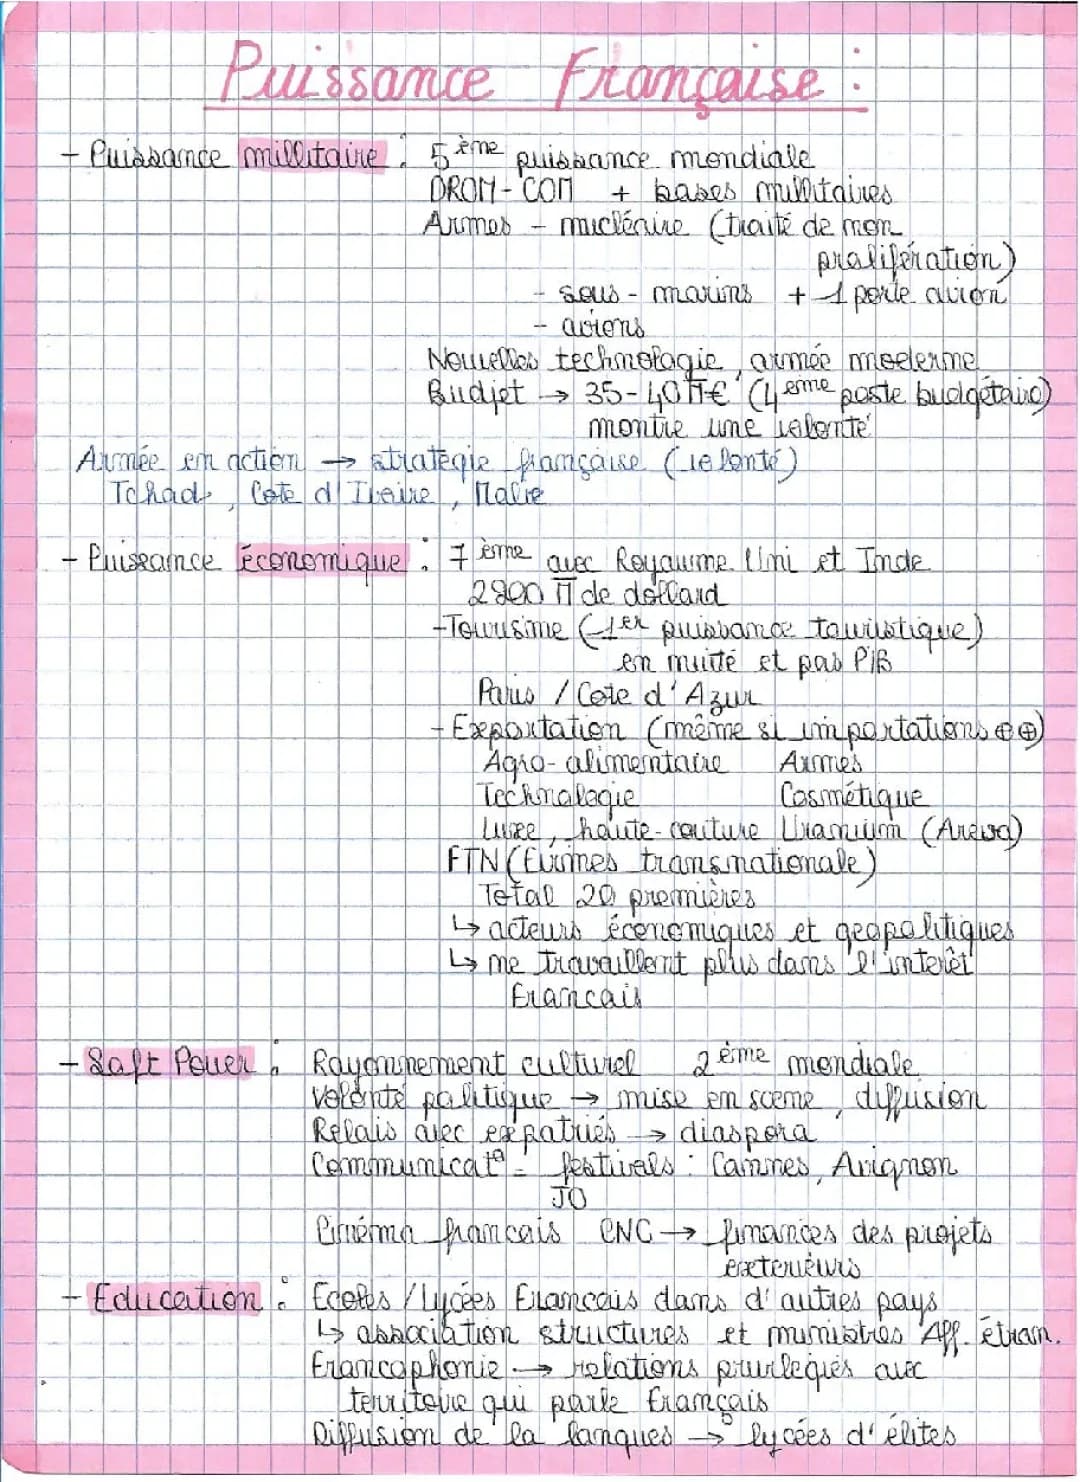 Puissance Française :
- Puissance millitaire : 5ème puissance mondiale
DROM-COM + bases millitaires
Armes - nucléaire (traité de non
prolifération)
- sous-marins + 1 porte avion
- avions
Nouvelles technologie, armée moderne
Budjet → 35-40 M€ (4ème poste budgétaire)
montre une volonté
Armée en action → stratégie française (volonté)
Tchad, Cote d'Ivoire, Malie
- Puissance économique : 7ème avec Royaume Uni et Inde
2900 M de dollard
- Tourisme (1er puissance touristique)
en nuité et pas PIB
Paris / Cote d'Azur
- Exportation (même si importations ⊕⊕)
Agro-alimentaire Armes
Technologie Cosmétique
Luxe, haute-couture Uranium (Areva)
FTN (Firmes transnationale)
Total 20 premières
↳ acteurs économiques et géopolitiques
↳ ne travaillent plus dans l'interêt
Francais
- Soft Power : Rayonnement culturel 2ème mondiale
Volonté politique → mise en scene, diffusion
Relais avec expatriés → diaspora
Communicat° - festivals : Cannes, Avignon
JO
Cinéma francais CNC → finances des projets
exterieurs
- Education : Ecoles / Lycées Francais dans d'autres pays
↳ association structures et ministres Aff. étran.
Francophonie → relations privilegiés avec
territoire qui parle français
Diffusion de la langues → lycées d'élites